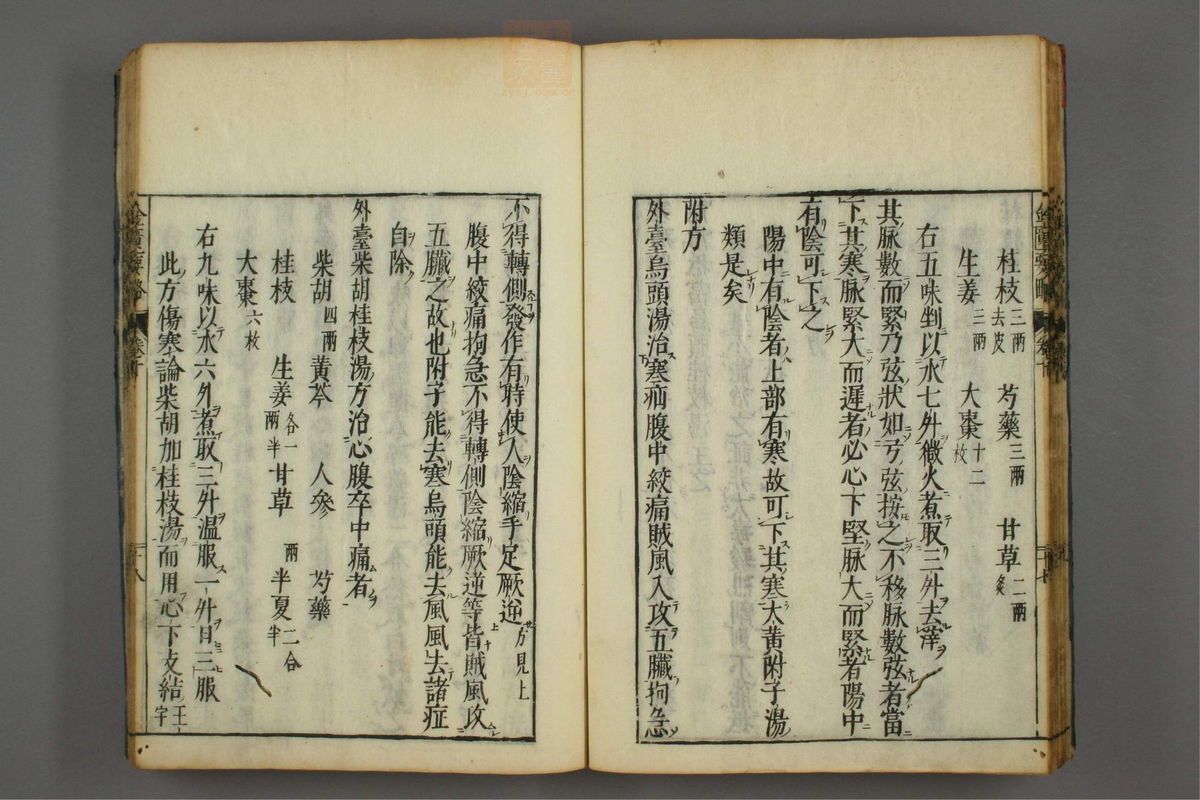 桂枝三兩去皮 芍藥三兩 甘草二兩炙
生姜三兩 大棗十二枚
右五味剉以水七升微火煮取三升去滓
其脉數而緊乃弦狀如弓弦按之不移脉數弦者當
下其寒脉緊大而遲者必心下堅脉大而緊者陽中
有陰可下之
陽中有陰者上部有寒故可下其寒大黃附子湯
類是矣
附方
外臺烏頭湯治寒疝腹中絞痛賊風入攻五臟拘急
不得轉側發作有時使人陰縮手足厥逆方見上
腹中絞痛拘急不得轉側陰縮厥逆等皆賊風攻
五臟之故也附子能去寒烏頭能去風風去諸症
自除
外臺柴胡桂枝湯方治心腹卒中痛者
柴胡四兩 黃芩 人參 芍藥
桂枝 生姜各一兩半 甘草一兩 半夏二合半
大棗六枚
右九味以水六升煮取三升溫服一升日三服
此方傷寒論柴胡加桂枝湯而用心下支結王字
金匱要略 卷十